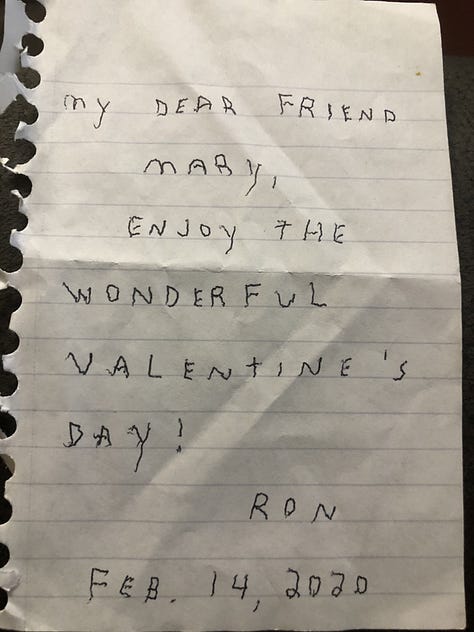 my DEAR FRIEND
MARY,
ENJOY THE
WONDERFUL
VALENTINE'S
DAY!
RON
FEB. 14, 2020